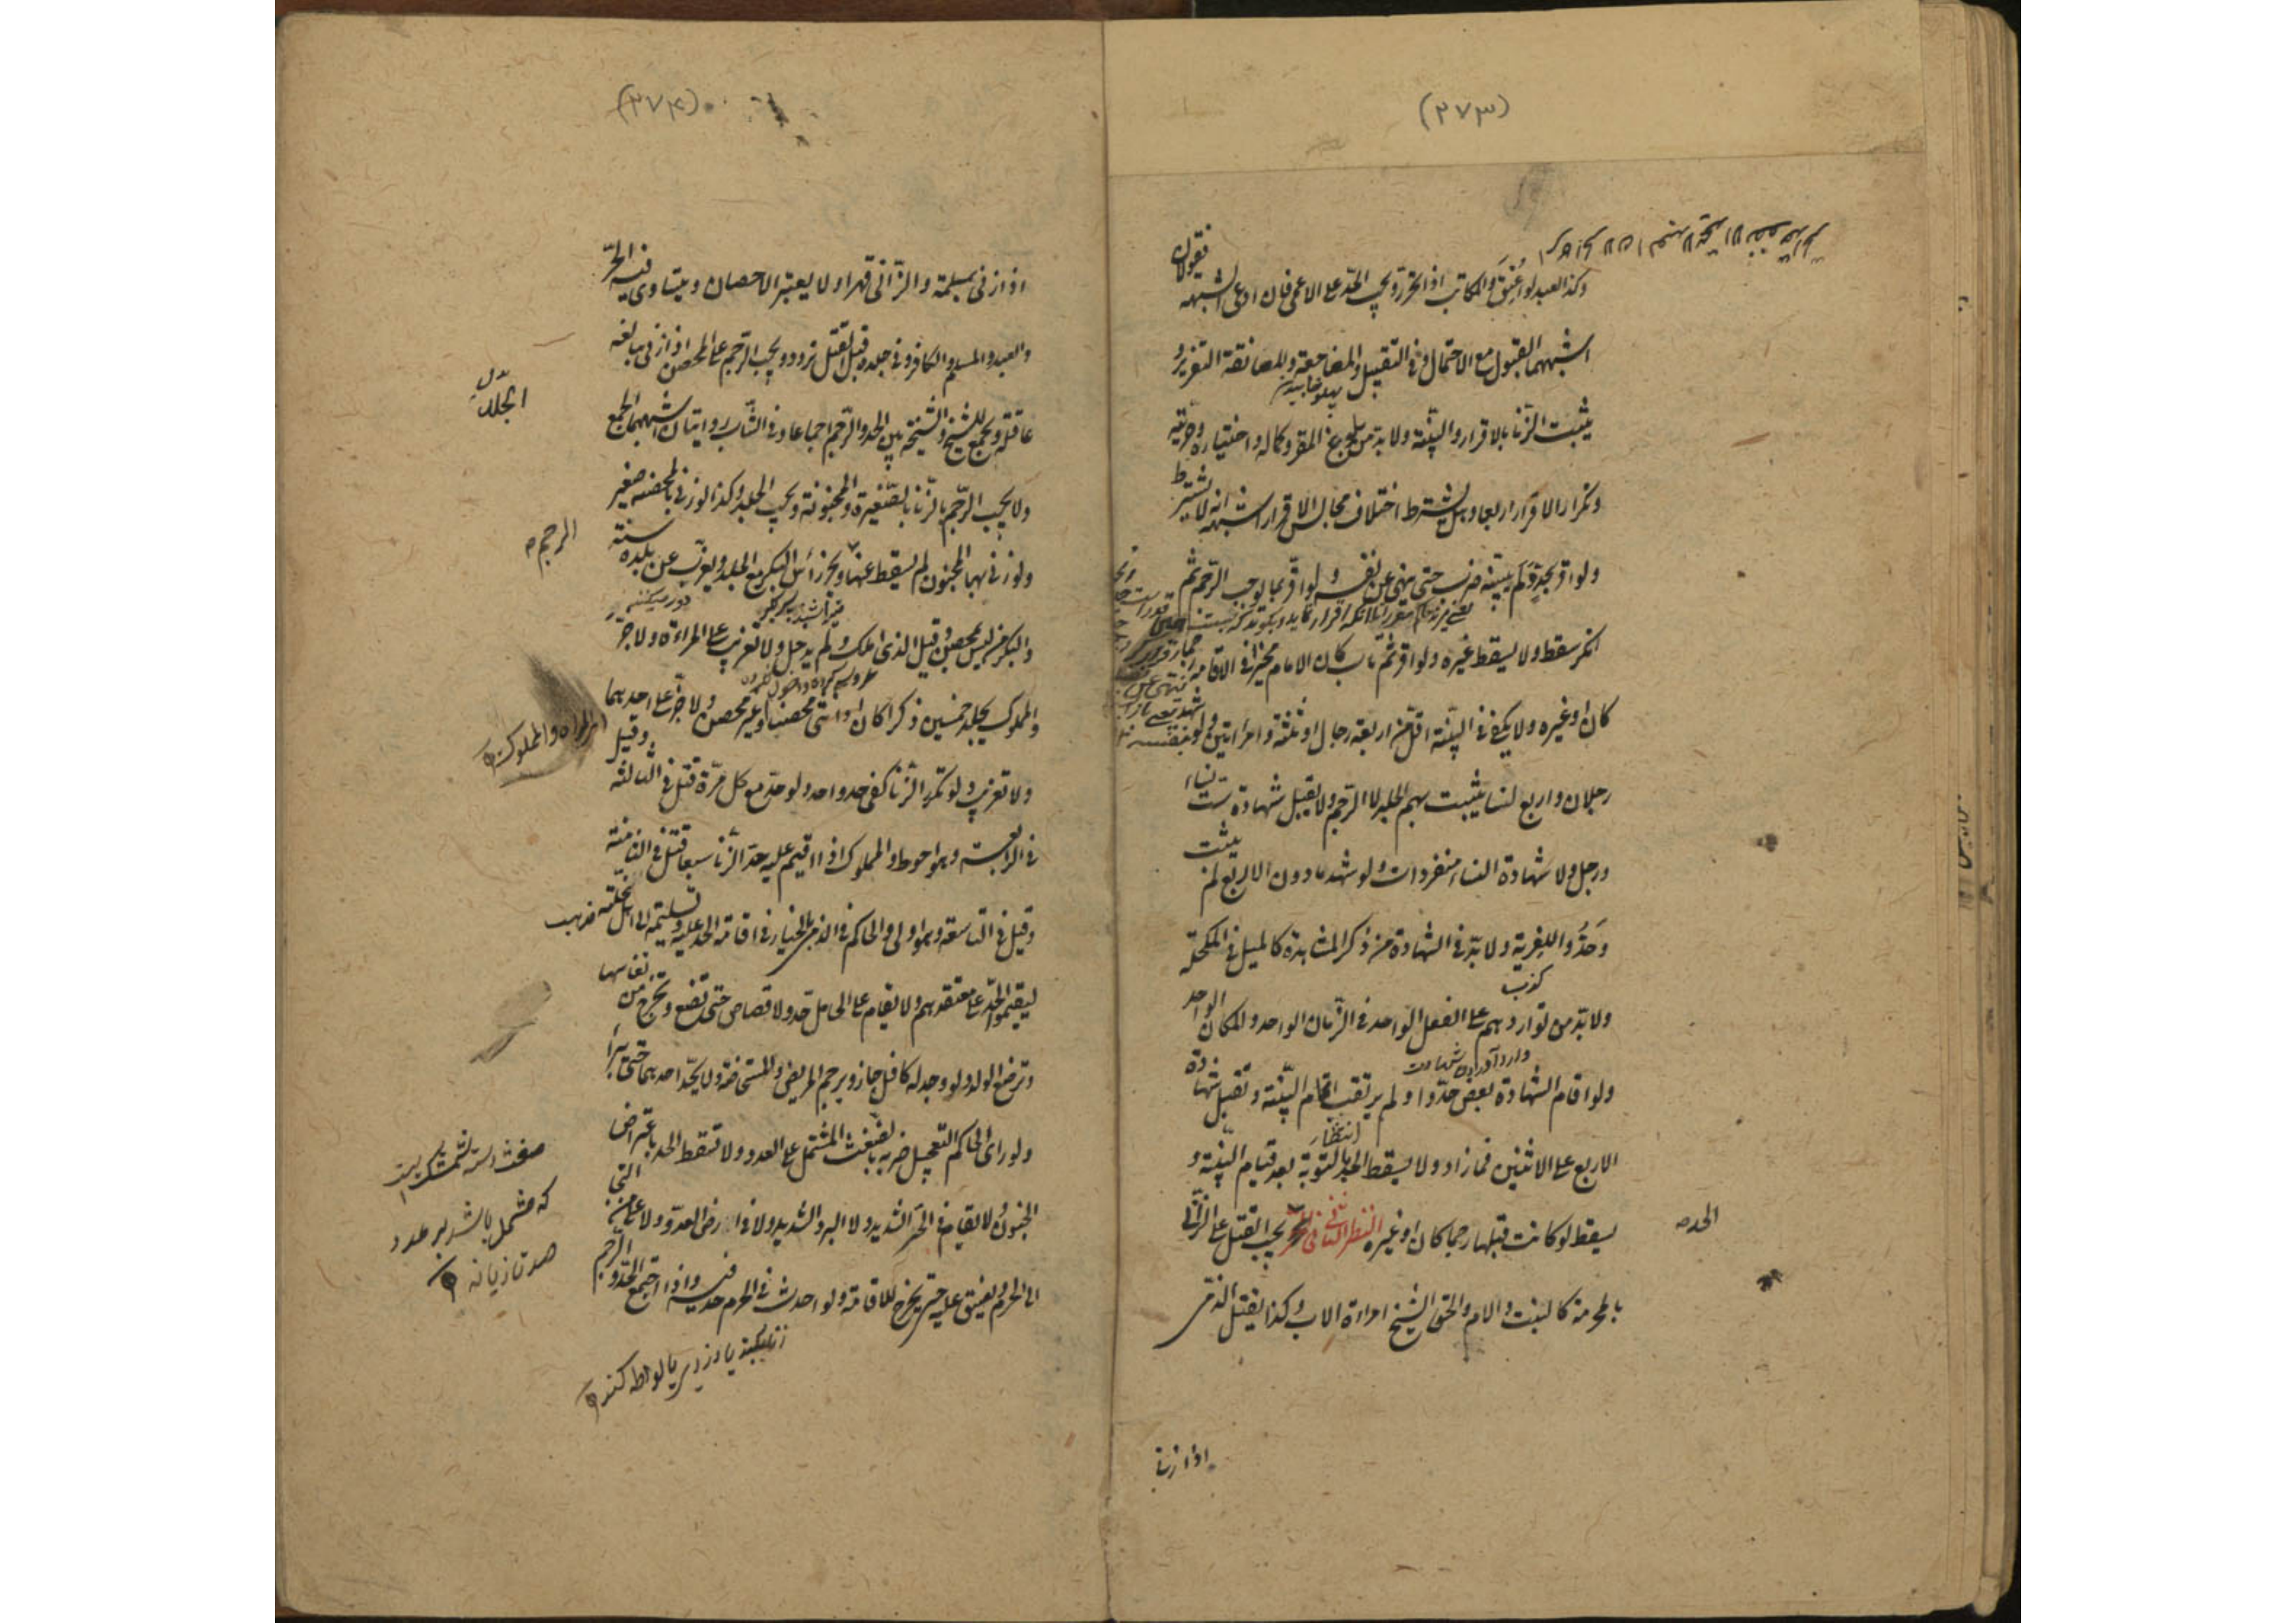 (۳۷۳)
وكذا العبد لو اعتق والمكاتب اذا تحرر ويجب الحد على الاعمى فان ادعى الشبهة فقولان
اشبههما القبول مع الاحتمال وفى التقبيل والمضاجعة والمعانقة التعزير و
يثبت الزنا بالاقرار والبينة ولا بد من بلوغ المقر وكماله واختياره وحريته
وتكرار الاقرار اربعا وهل يشترط اختلاف مجالس الاقرار اشبهه انه لا يشترط
ولو اقر بحد ولم يبينه ضرب حتى ينهى عن نفسه ولو اقر بما يوجب الرجم ثم
انكر سقط ولا يسقط غيره ولو اقر ثم تاب كان الامام مخيرا فى الاقامة رجما
كان او غيره ولا يكفى فى البينة اقل من اربعة رجال او ثلثة وامرأتين ولو شهد
رجلان واربع نساء يثبت بهم الجلد لا الرجم ولا يقبل شهادة ست نساء
ورجل ولا شهادة النساء منفردات ولو شهد ما دون الاربع لم يثبت
وحدوا للفرية ولا بد فى الشهادة من ذكر المشاهدة كالميل فى المكحلة
ولا بد من تواردهم على الفعل الواحد فى الزمان الواحد والمكان الواحد
وارد آوردن شهادت
ولو اقام الشهادة بعض حدوا ولم يرتقب اتمام البينة وتقبل شهادة
انتظار
الاربع على الاثنين فما زاد ولا يسقط الحد بالتوبة بعد قيام البينة و
يسقط لو كانت قبلها رجما كان او غيره النظر الثانى فى الحد يجب القتل على الزانى
الحد
بالمحرمة كالبنت والام والحق الشيخ امراة الاب وكذا يقتل الذمى
اذا زنا
(۳۷۴)
اذا زنى بمسلمة والزانى قهرا ولا يعتبر الاحصان ويتساوى فيه الحر
والعبد والمسلم والكافر وفى جلده قبل القتل تردد ويجب الرجم على المحصن اذا زنى ببالغة
الجلد
عاقلة ويجمع للشيخ والشيخة بين الحد والرجم اجماعا وفى الشاب روايتان اشبههما الجمع
ولا يجب الرجم بالزنا بالصغيرة والمجنونة ويجب الجلد وكذا لو زنى بالمحصنة صغير
الرجم
ولو زنى بها المجنون لم يسقط عنها ويجز رأس البكر مع الجلد ويغرب عن بلده سنة
دور میکنند
والبكر من ليس بمحصن وقيل الذى املك ولم يدخل ولا تغريب على المراءة ولا جز
والمملوك يجلد خمسين ذكرا كان او انثى محصنا او غير محصن ولا جز على احدهما
المراة والمملوك
ولا تغريب ولو تكرر الزنا كفى حد واحد ولو حد مع كل مرة قتل فى الثالثة وقيل
فى الرابعة وهو احوط والمملوك اذا اقيم عليه حد الزنا سبعا قتل فى الثامنة
وقيل فى التاسعة وهو اولى والحاكم فى الذمى بالخيار فى اقامة الحد عليه وتسليمه الى اهل نحلته
ليقيموا الحد على معتقدهم ولا يقام على الحامل حد ولا قصاص حتى تضع وتخرج من نفاسها
وترضع الولد ولو وجد له كافل جاز ويرجم المريض والمستحاضة ولا يحد احدهما حتى تبرأ
ولو راى الحاكم التعجيل ضربه بالضغث المشتمل على العدد ولا تسقط الحد باعتراض
الجنون ولا يقام فى الحر الشديد ولا البرد الشديد ولا فى ارض العدو ولا على من التجى
الى الحرم ويضيق عليه حتى يخرج للاقامة ولو احدث فى الحرم حد فيه واذا اجتمع الحد والرجم
که مشتمل باشد بر عدد
صد تازیانه